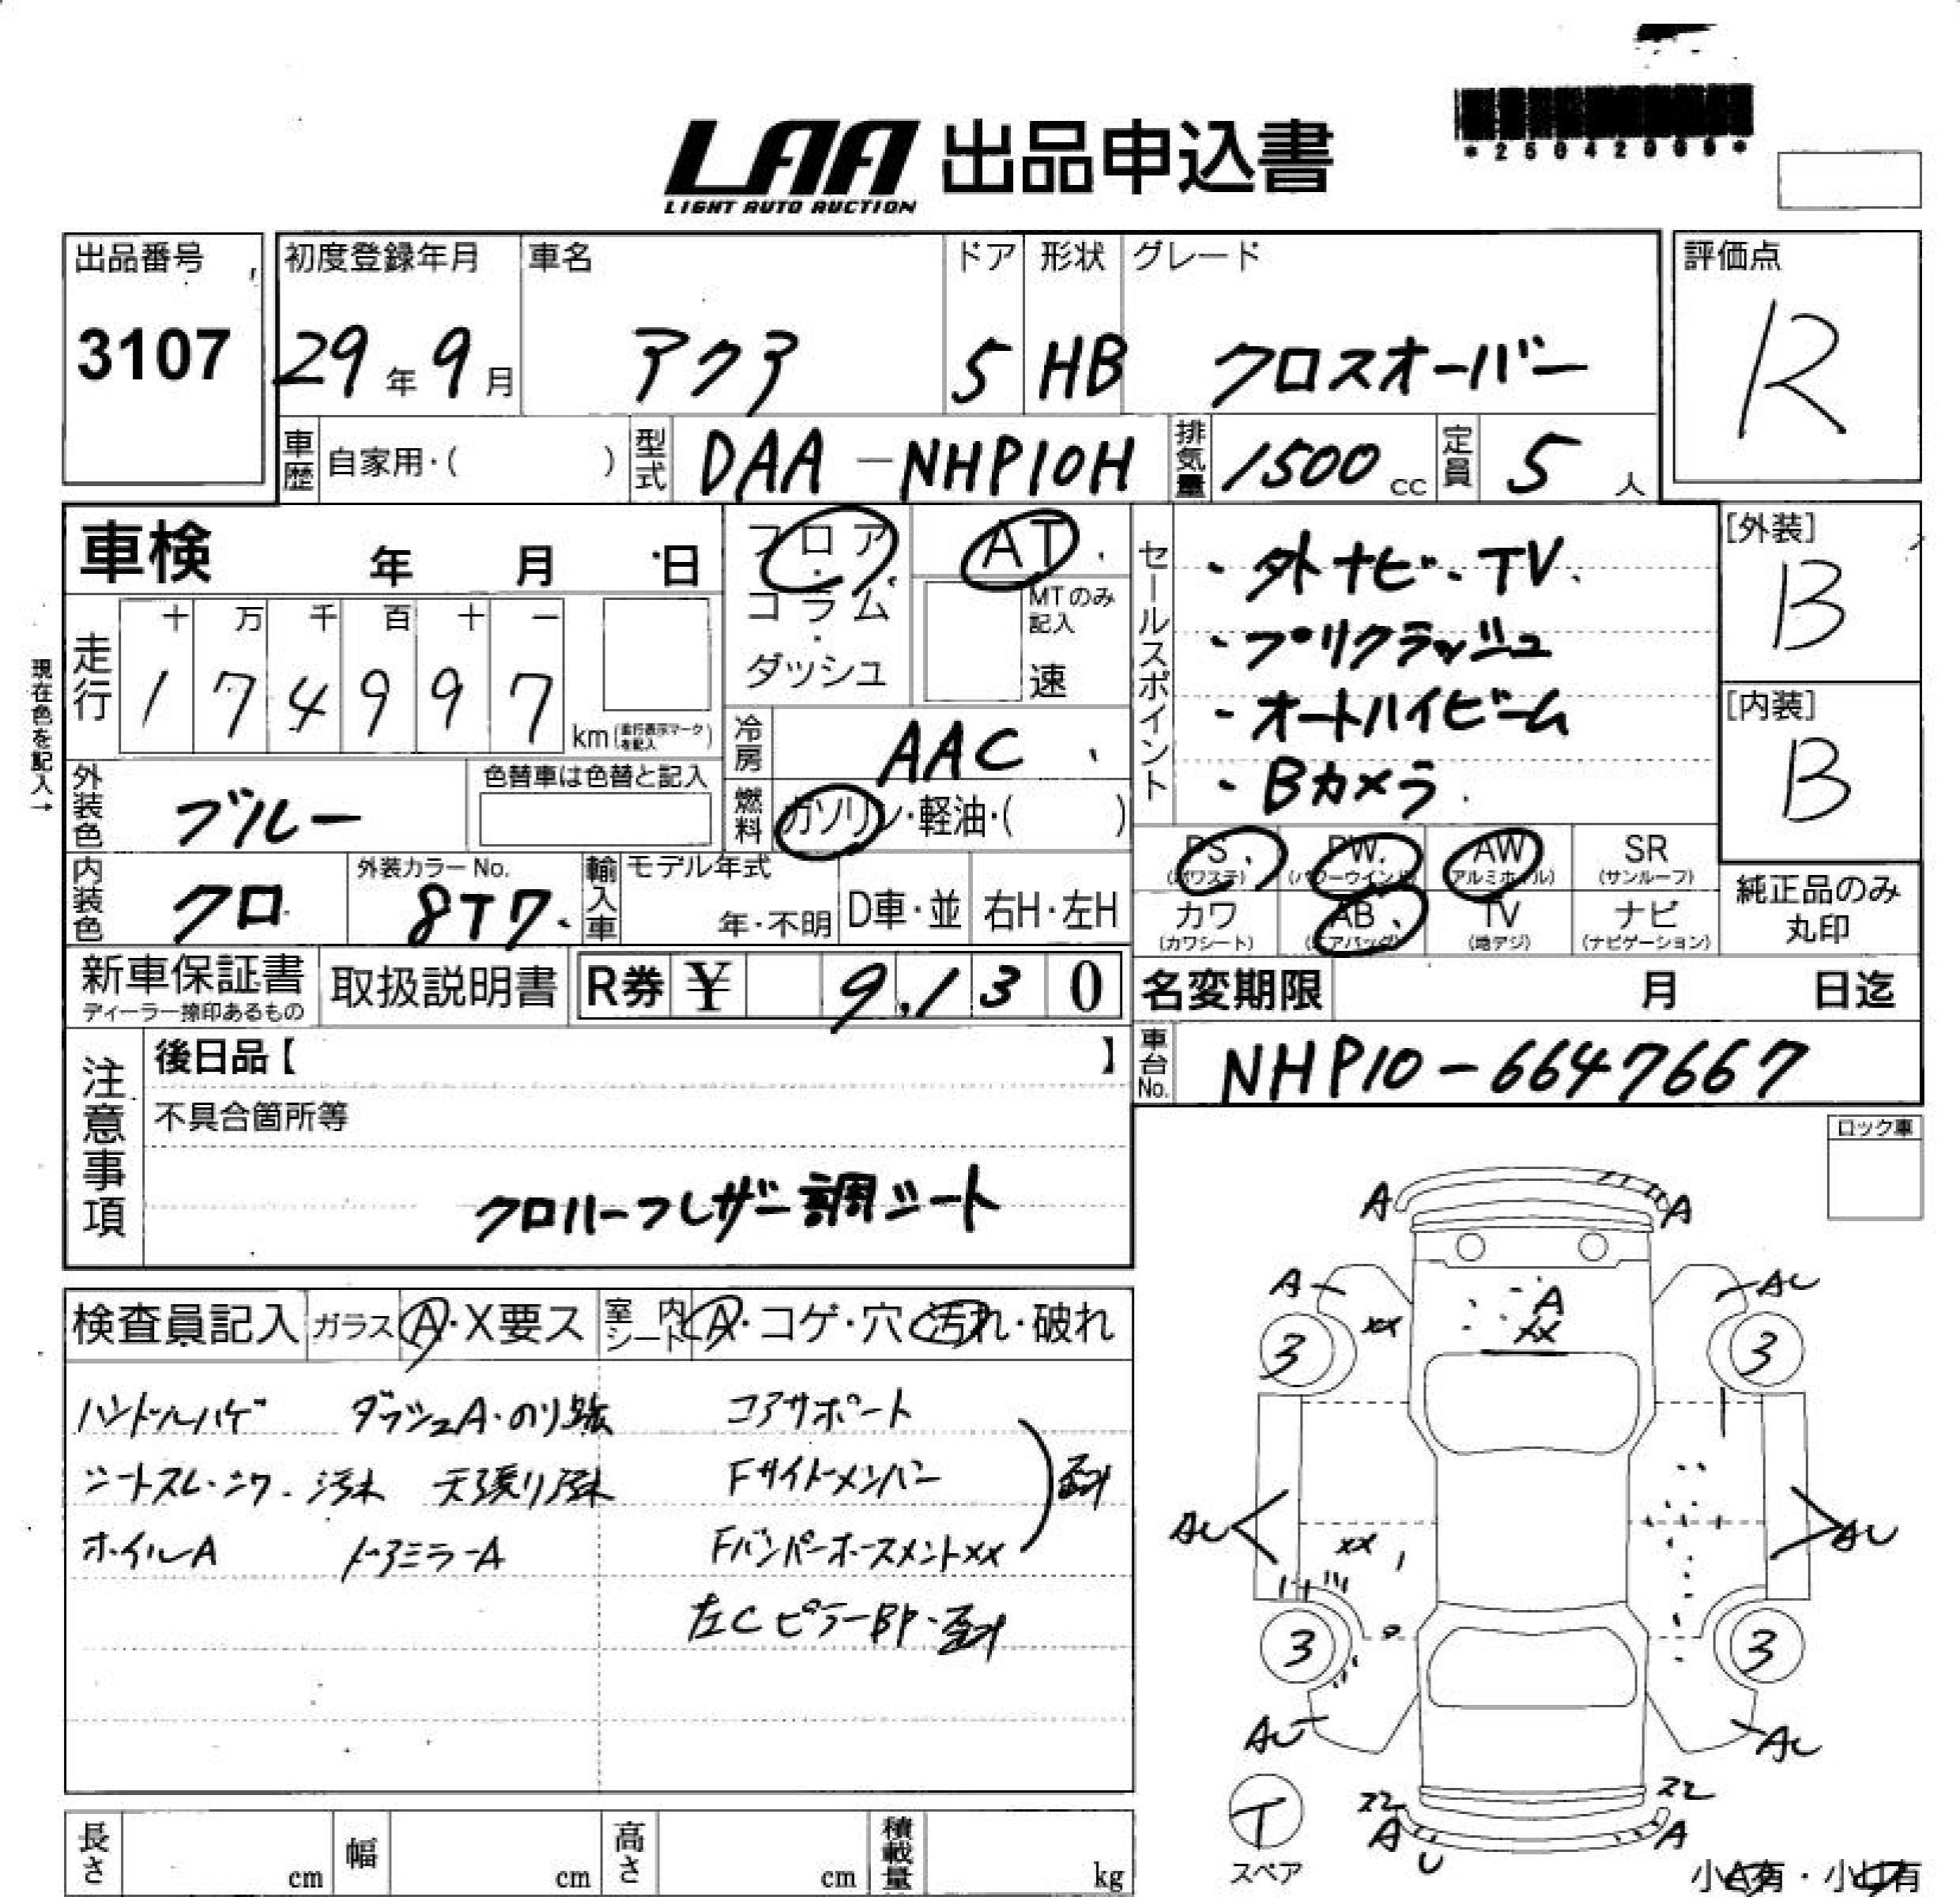 LAA 出品申込書
LIGHT AUTO AUCTION
出品番号
3107
初度登録年月
29年 9月
車名
アクア
ドア
5
形状
HB
グレード
クロスオーバー
評価点
R
車歴 自家用・( )
型式 DAA-NHP10H
排気量 1500 cc
定員 5 人
車検 年 月 日
フロア・コラム・ダッシュ
AT
MTのみ記入
速
セールスポイント
・外ナビ・TV
・プリクラッシュ
・オートハイビーム
・Bカメラ
[外装]
B
[内装]
B
現在色を記入→
走行 十 万 千 百 十 一
1 7 4 9 9 7 km (走行表示マークを記入)
冷房 AAC
燃料 ガソリン・軽油・( )
外装色 ブルー
色替車は色替と記入
PS (パワステ)
PW (パワーウインド)
AW (アルミホイル)
SR (サンルーフ)
カワ (カワシート)
AB (エアバッグ)
TV (地デジ)
ナビ (ナビゲーション)
純正品のみ丸印
内装色 クロ
外装カラーNo. 8T7
輸入車 モデル年式 年・不明
D車・並
右H・左H
新車保証書
ディーラー捺印あるもの
取扱説明書
R券 ¥ 9,130
名変期限 月 日迄
車台No. NHP10-6647667
注意事項
後日品【 】
不具合箇所等
クロハーフレザー調シート
ロック車
検査員記入 ガラス A・X要ス
室内シート A・コゲ・穴・汚れ・破れ
ハンドルハゲ ダッシュA・のり跡 コアサポート
シートスレ・シワ・汚れ 天張り汚れ Fサイドメンバー
ホイルA ドアミラーA Fバンパーホースメントxx
左CピラーBP・歪み
A A
A AU
A
XX
XX
3 3
AU AU
XX
3 3
AU AU
T
スペア
A U A
長さ cm
幅 cm
高さ cm
積載量 kg
小A有・小U有